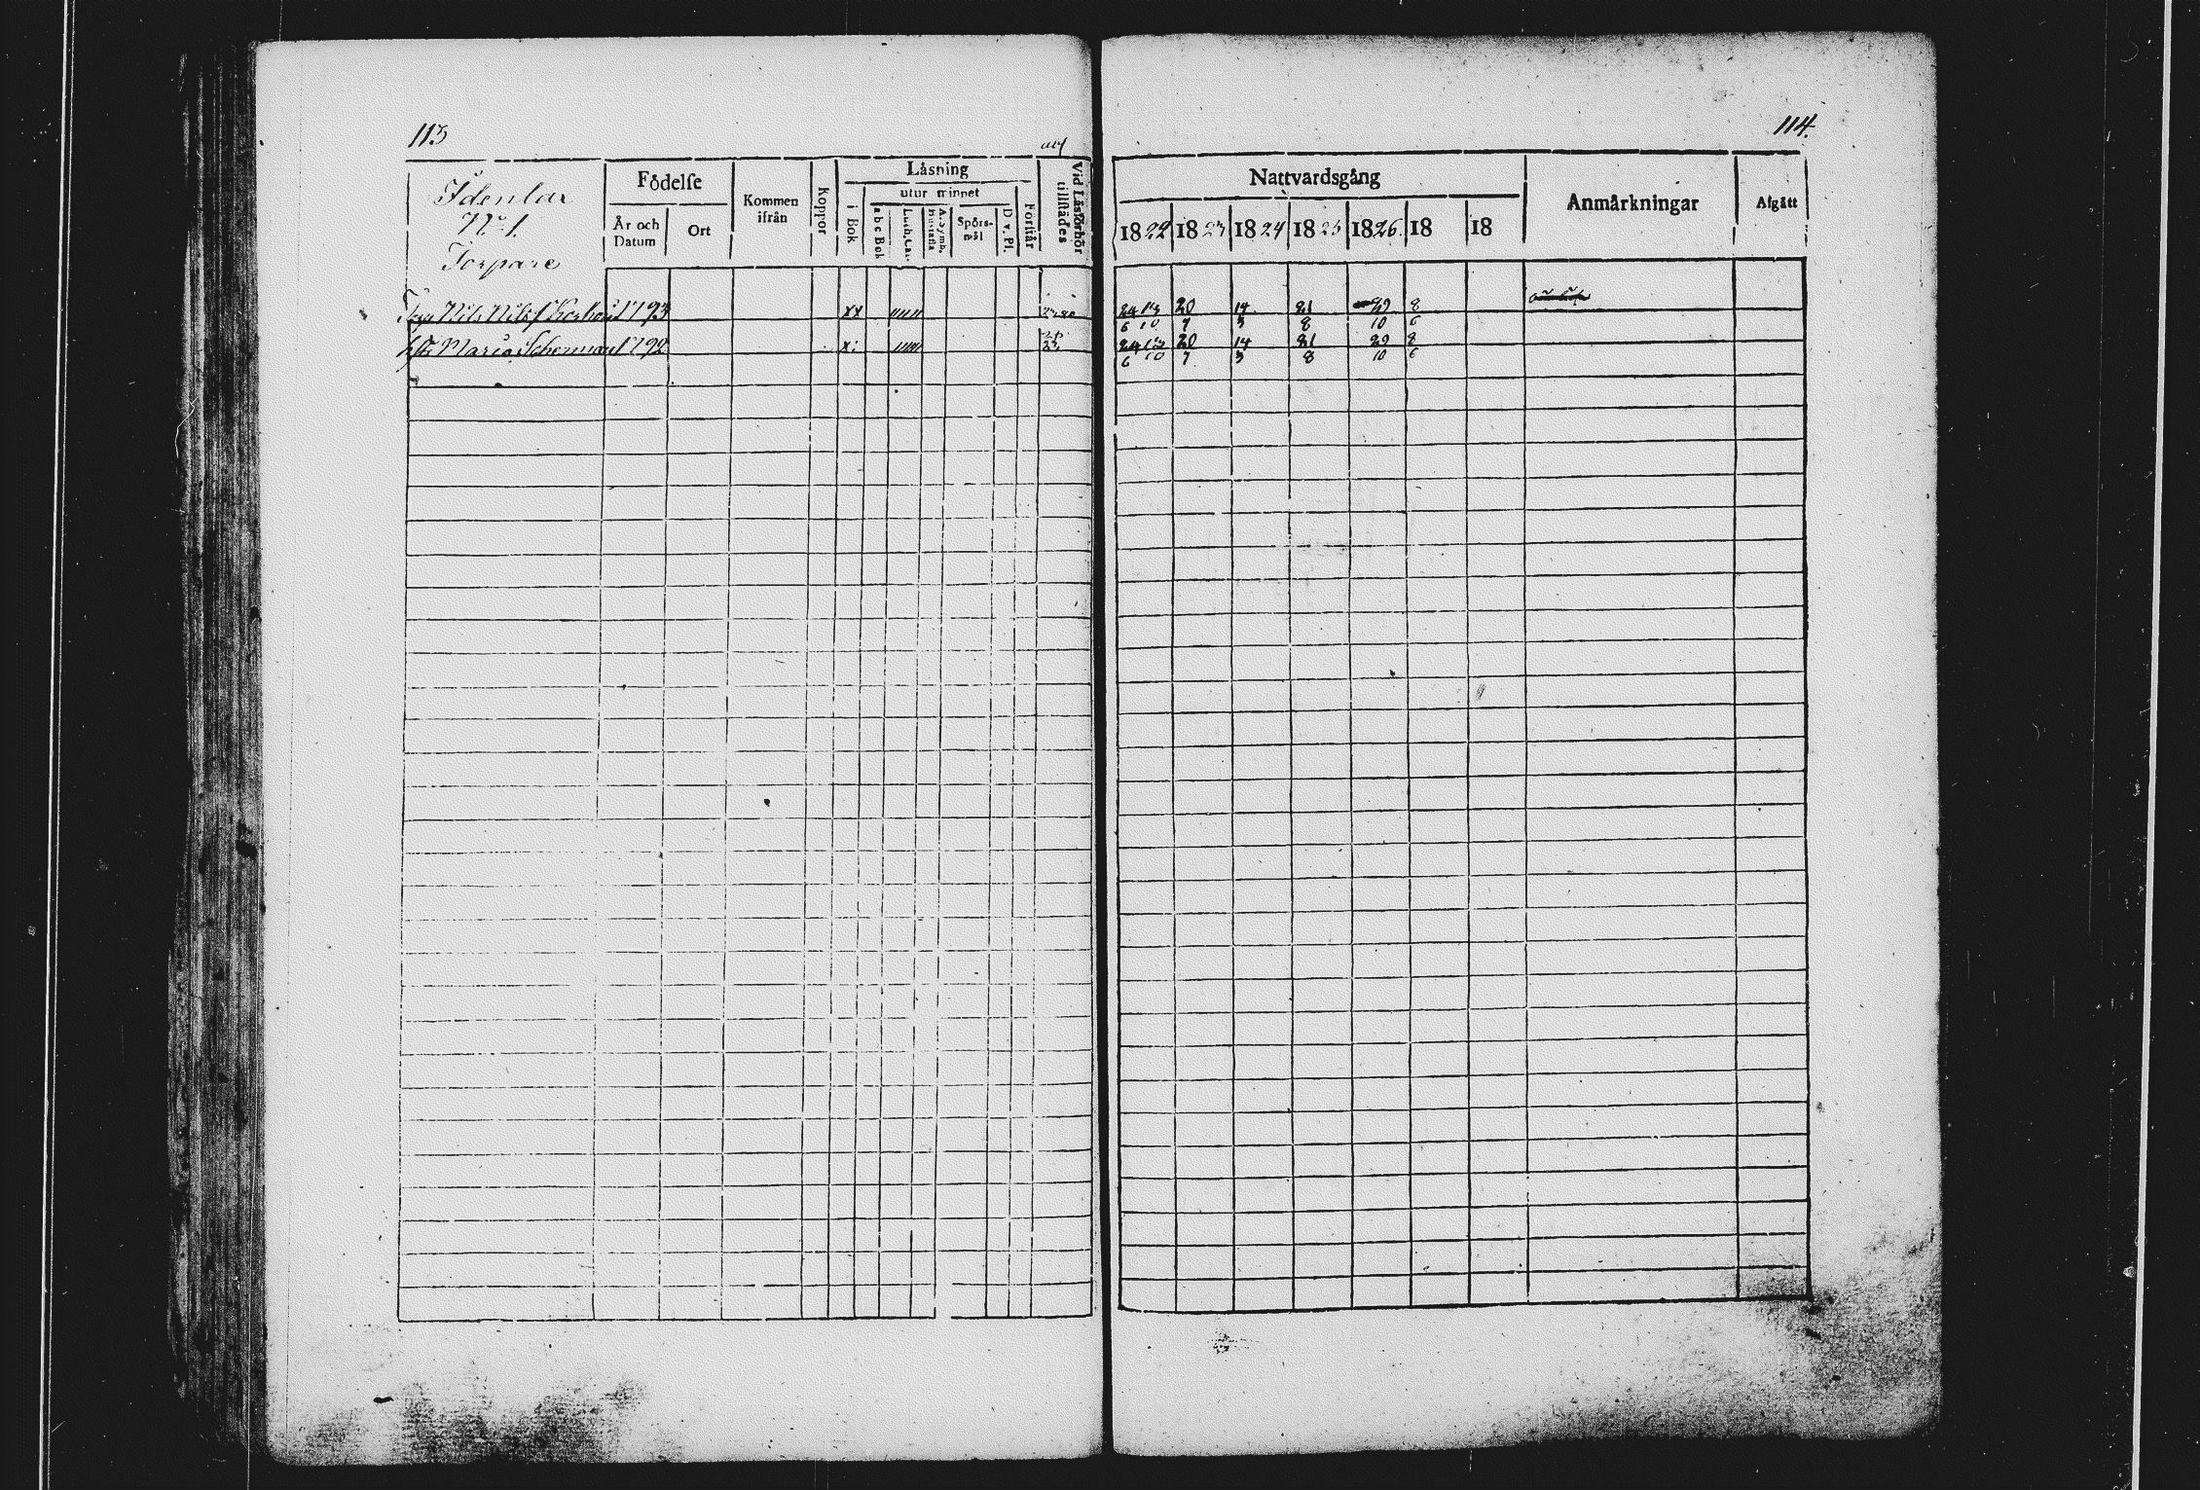 113
Läsning
Födelse
utur minnet
Kommen ifrån
Koppor
i Bok
a b c Bok
Luth. Cat.
A. Symb. Hustafla
Spörsmål
D. v. Pl.
Förstår
Vid Läsförhör tillstädes
År och Datum
Ort
No 1.
Torpare
Nils Nilsf 1793 xx
Maria 1792 x
114.
Nattvardsgång
Anmärkningar
Afgått
1822 1823 1824 1825 1826. 18 18
24 13 20 14 21 29 8
6 10 7 3 8 10 6
24 13 20 14 21 29 8
6 10 7 3 8 10 6